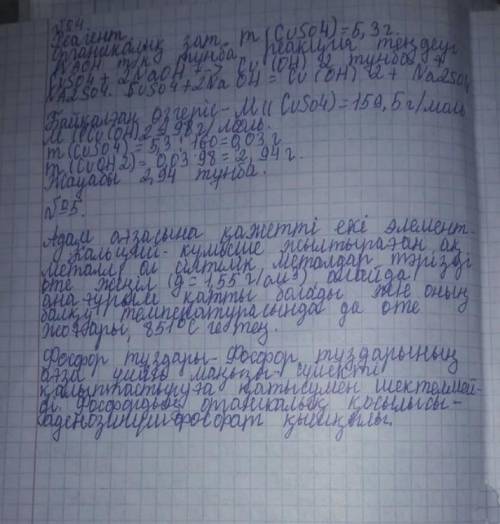 №4.
Реагент
Органикалық зат m (CuSO4)=5,3г.
NaOH түк тұнба, реакция теңдеуі
CuSO4 + 2NaOH + -> Cu(OH)2 тұнба +
Na2SO4. CuSO4+2NaOH = Cu(OH)2+ Na2SO4
Байқалған өзгеріс - M(( CuSO4)=159,5г/моль
M ((Cu(OH)2=98г/моль.
m (CuSO4) = 5,3 : 160=0,03г
m (CuOH2)= 0,03 98=2,94г.
Жауабы 2,94 тұнба.
№5.
Адам ағзасына қажетті екі элемент.
Кальций - күміспе жылтыраған ақ
металл ол сілтілік металдар тәрізді
өте жеңіл (g=1,55г/см3) алайда
анағұрлым қатты болады және оның
балқу температурасында да өте
жоғары, 851°C ге тең.
Фосфор тұздары - Фосфор тұздарының
ағза үшін маңызы - сүйекті
қалыптастыруға қатысумен шектелмей-
ді. Фосфордың органикалық қосылысы -
аденозинүшфосфорат қышқылы.